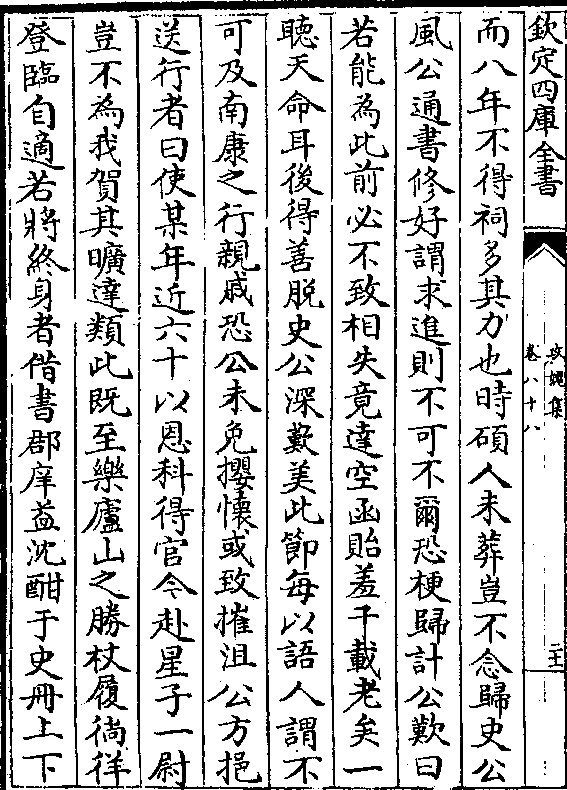 欽定四庫全書
攻媿集
卷八十八
二十一
而八年不得祠多其力也時碩人未葬豈不念歸史公
風公通書修好謂求進則不可不爾恐梗歸計公歎曰
若能為此前必不致相失竟達空函貽羞千載老矣一
聽天命耳後得善脱史公深歎美此節每以語人謂不
可及南康之行親戚恐公未免攖懷或致摧沮公方挹
送行者曰使某年近六十以恩科得官今赴星子一尉
豈不為我賀其曠達類此既至樂廬山之勝杖履徜徉
登臨自適若將終身者借書郡庠益沈酣于史冊上下